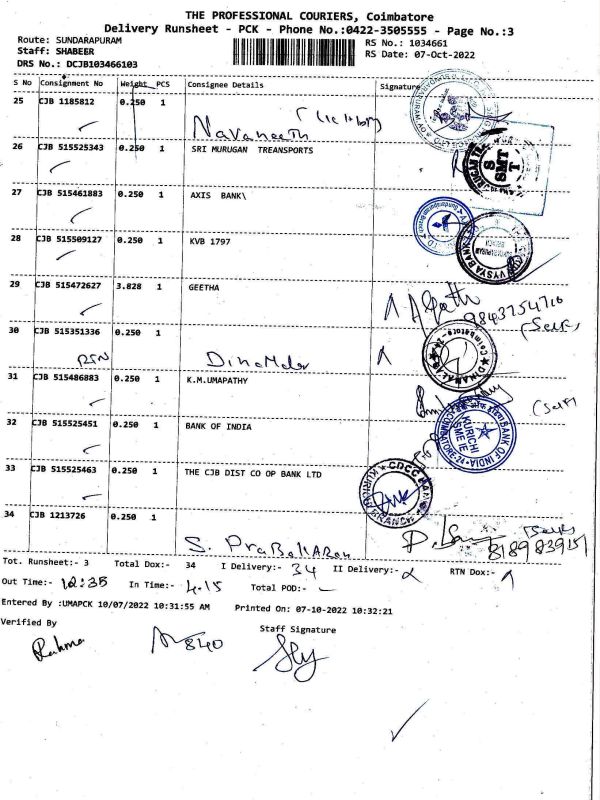 THE PROFESSIONAL COURIERS, Coimbatore
Delivery Runsheet - PCK - Phone No.:0422-3505555 - Page No.:3
Route: SUNDARAPURAM RS No.: 1034661
Staff: SHABEER RS Date: 07-Oct-2022
DRS No.: DCJB103466103
S No Consignment No Weight PCS Consignee Details Signature
25 CJB 1185812 0.250 1
Navaneeth
26 CJB 515525343 0.250 1 SRI MURUGAN TREANSPORTS
S SMT T
27 CJB 515461883 0.250 1 AXIS BANK\
28 CJB 515509127 0.250 1 KVB 1797
VYSYA BANK
29 CJB 515472627 3.828 1 GEETHA
9843754716
(Self)
30 CJB 515351336 0.250 1
RTN DinaMalar
DINAMALAR Coimbatore
31 CJB 515486883 0.250 1 K.M.UMAPATHY
(Self)
32 CJB 515525451 0.250 1 BANK OF INDIA
BANK OF INDIA
KURICHI
SME IE
33 CJB 515525463 0.250 1 THE CJB DIST CO OP BANK LTD
CDCC BANK
34 CJB 1213726 0.250 1
S. PRabakaRan
8189839151
Tot. Runsheet:- 3 Total Dox:- 34 I Delivery:- 34 II Delivery:- RTN Dox:-
Out Time:- 12:35 In Time:- 4.15 Total POD:- -
Entered By :UMAPCK 10/07/2022 10:31:55 AM Printed On: 07-10-2022 10:32:21
Verified By Staff Signature
840